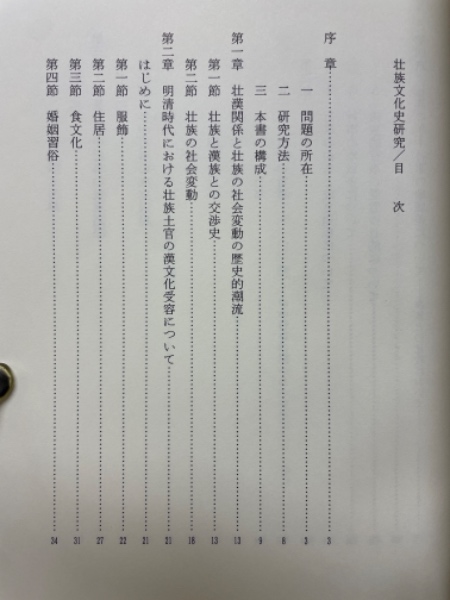 壮族文化史研究／目　次
序　章……………………3
一　問題の所在……………………3
二　研究方法……………………8
三　本書の構成……………………9
第一章　壮漢関係と壮族の社会変動の歴史的潮流……………………13
第一節　壮族と漢族との交渉史……………………13
第二節　壮族の社会変動……………………18
第二章　明清時代における壮族土官の漢文化受容について……………………21
はじめに……………………21
第一節　服飾……………………22
第二節　住居……………………27
第三節　食文化……………………31
第四節　婚姻習俗……………………34